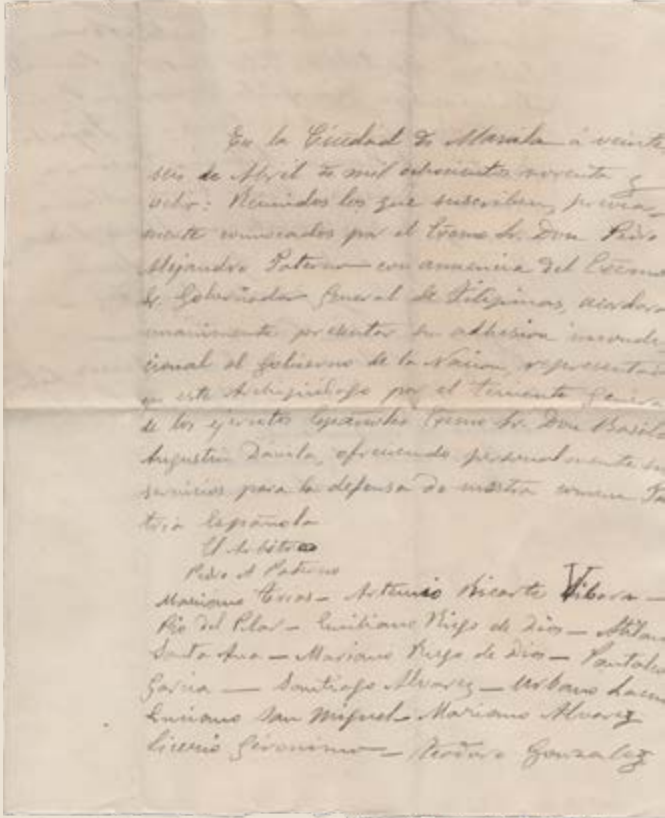 En la Ciudad de Manila á veinte
seis de Abril de mil ochocientos noventa y
ocho: Reunidos los que suscriben, previa-
mente convocados por el Excmo Sr. Don Pedro
Alejandro Paterno con anuencia del Excmo
Sr. Gobernador General de Filipinas, acordaro
unanimente presentar su adhesion incondi
cional al Gobierno de la Nacion, representad
en este Archipielago por el teniente Genera
de los ejercitos Españoles Excmo Sr. Don Basilio
Augustin Davila, ofreciendo personalmente su
servicios para la defensa de nuestra comun Pa
tria Española
El Arbitro
Pedro A Paterno
Mariano Trias - Artemio Ricarte Vibora -
Pio del Pilar - Emiliano Riego de Dios -
Santa Ana - Mariano Riego de Dios - Pantaleo
Garcia - Santiago Alvarez - Urbano Lacu
Luciano San Miguel - Mariano Alvarez
Licerio Geronimo - Teodoro Gonzalez